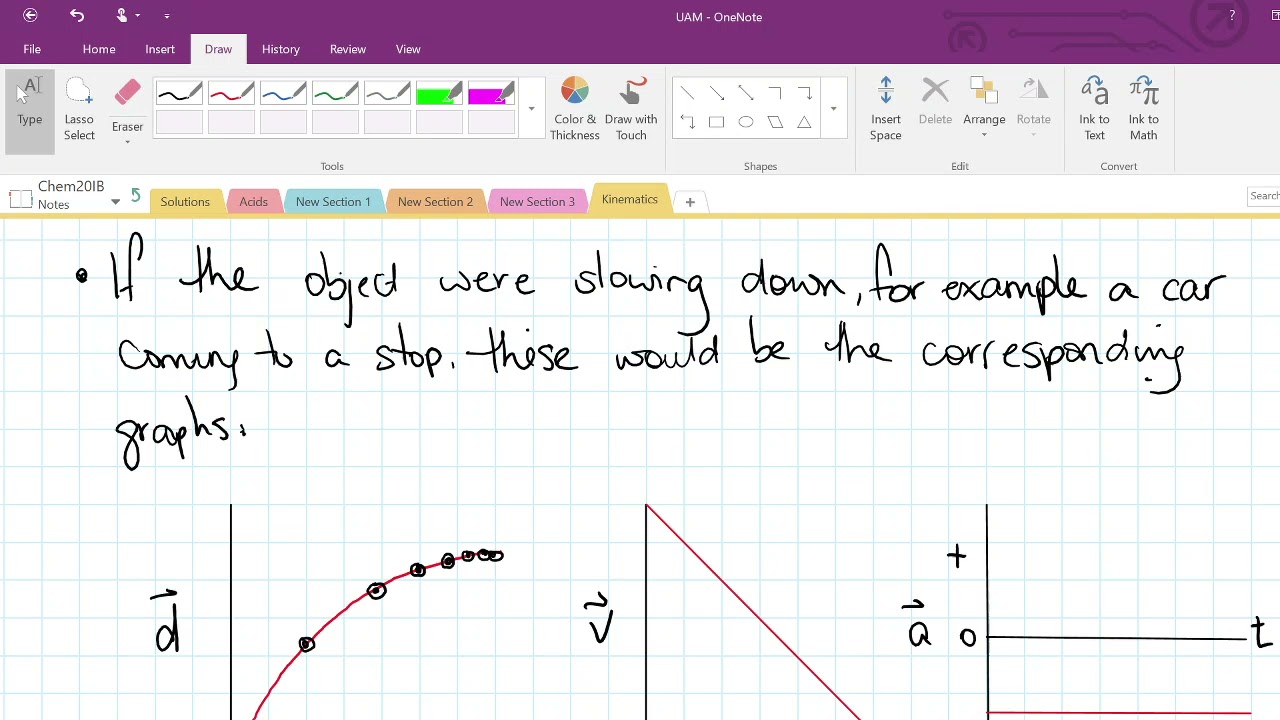 UAM - OneNote
?
File Home Insert Draw History Review View
Type
Lasso Select
Eraser
Color & Thickness
Draw with Touch
Insert Space
Delete
Arrange
Rotate
Ink to Text
Ink to Math
Tools
Shapes
Edit
Convert
Chem20IB
Notes
Solutions Acids New Section 1 New Section 2 New Section 3 Kinematics +
Search
• If the object were slowing down, for example a car
coming to a stop, these would be the corresponding
graphs:
d
v
+
a 0 t